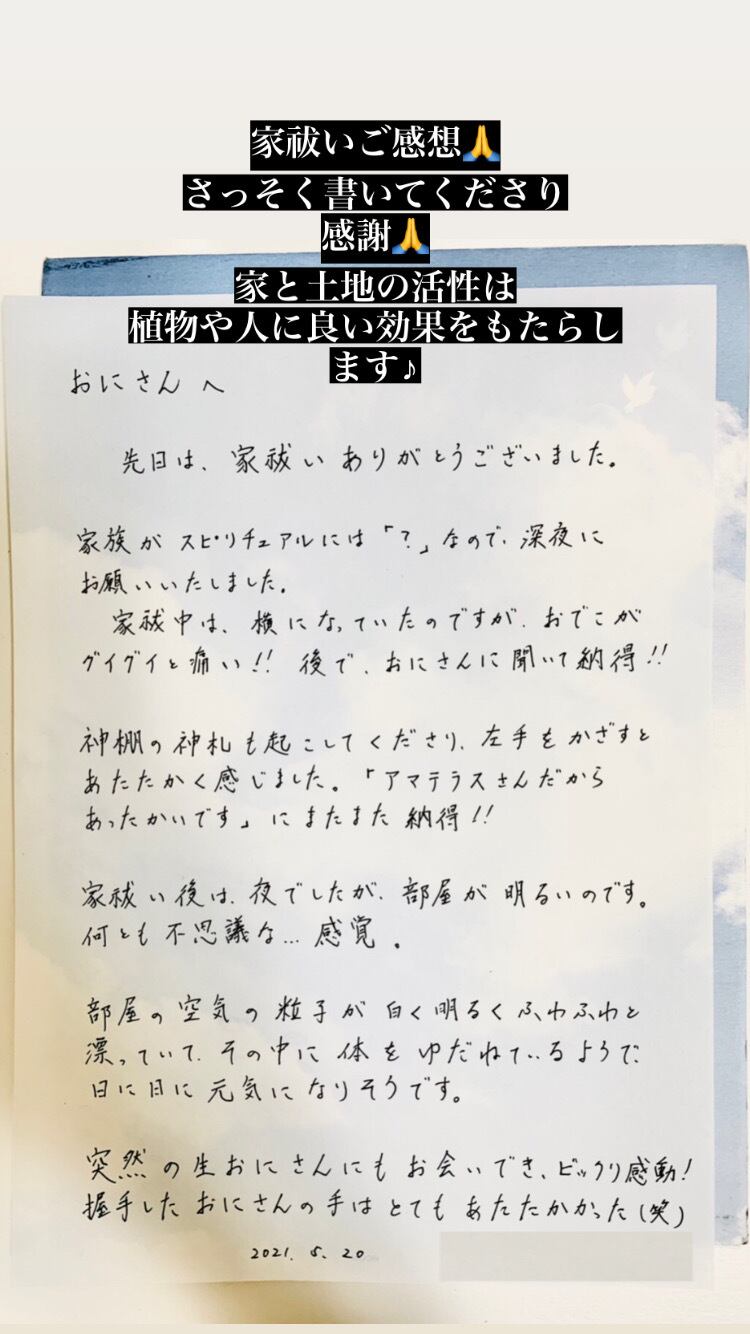 家祓いご感想🙏
さっそく書いてくださり
感謝🙏
家と土地の活性は
植物や人に良い効果をもたらし
ます♪
おにさんへ
先日は、家祓いありがとうございました。
家族がスピリチュアルには「?」なので、深夜に
お願いいたしました。
家祓中は、横になっていたのですが、おでこが
グイグイと痛い!! 後で、おにさんに聞いて納得!!
神棚の神札も起こしてくださり、左手をかざすと
あたたかく感じました。「アマテラスさんだから
あったかいです」にまたまた納得!!
家祓い後は、夜でしたが、部屋が明るいのです。
何とも不思議な…感覚。
部屋の空気の粒子が白く明るくふわふわと
漂っていて、その中に体をゆだねているようで、
日に日に元気になりそうです。
突然の生おにさんにもお会いでき、ビックリ感動!
握手したおにさんの手はとてもあたたかかった(笑)
2021.5.20